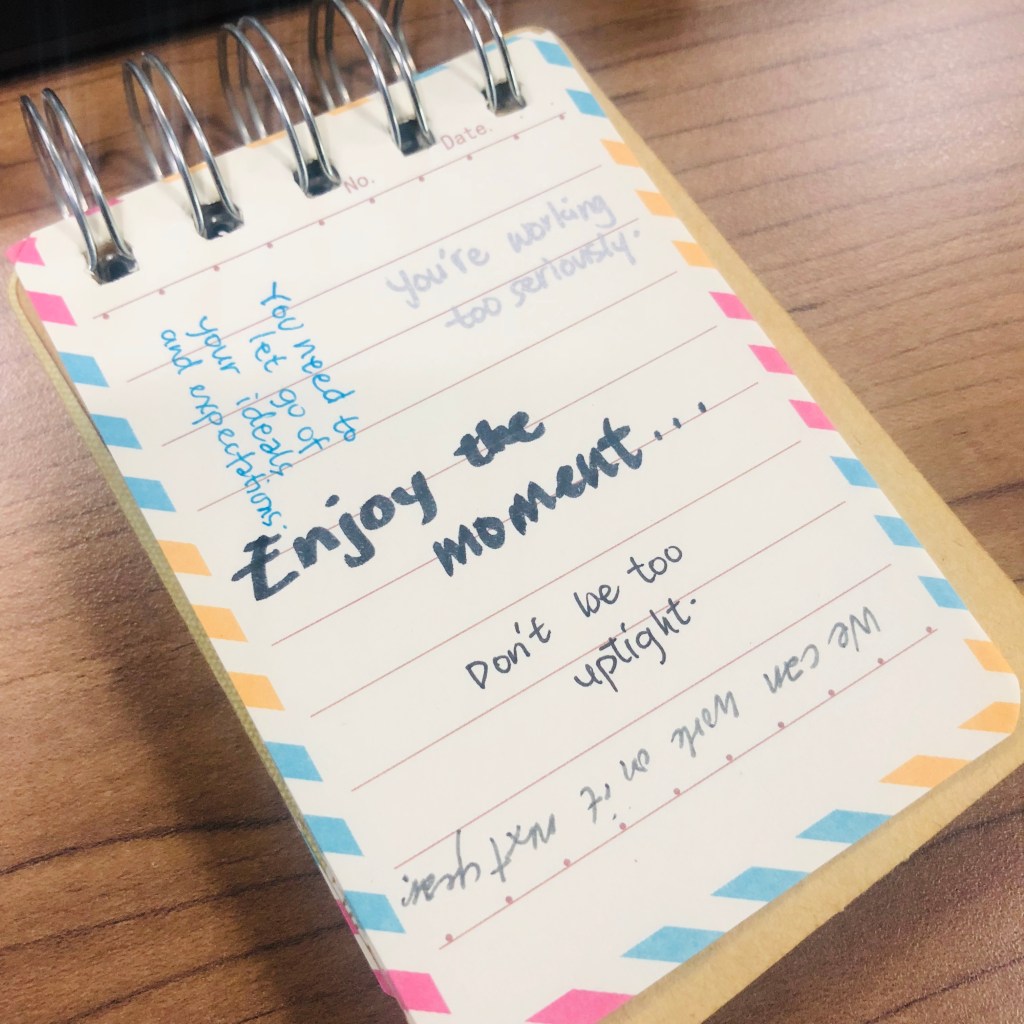 No.
Date.
You're working
too seriously.
You need to
let go of
your ideals
and expectations.
Enjoy the
moment...
Don't be too
uptight.
We can work on it next year.